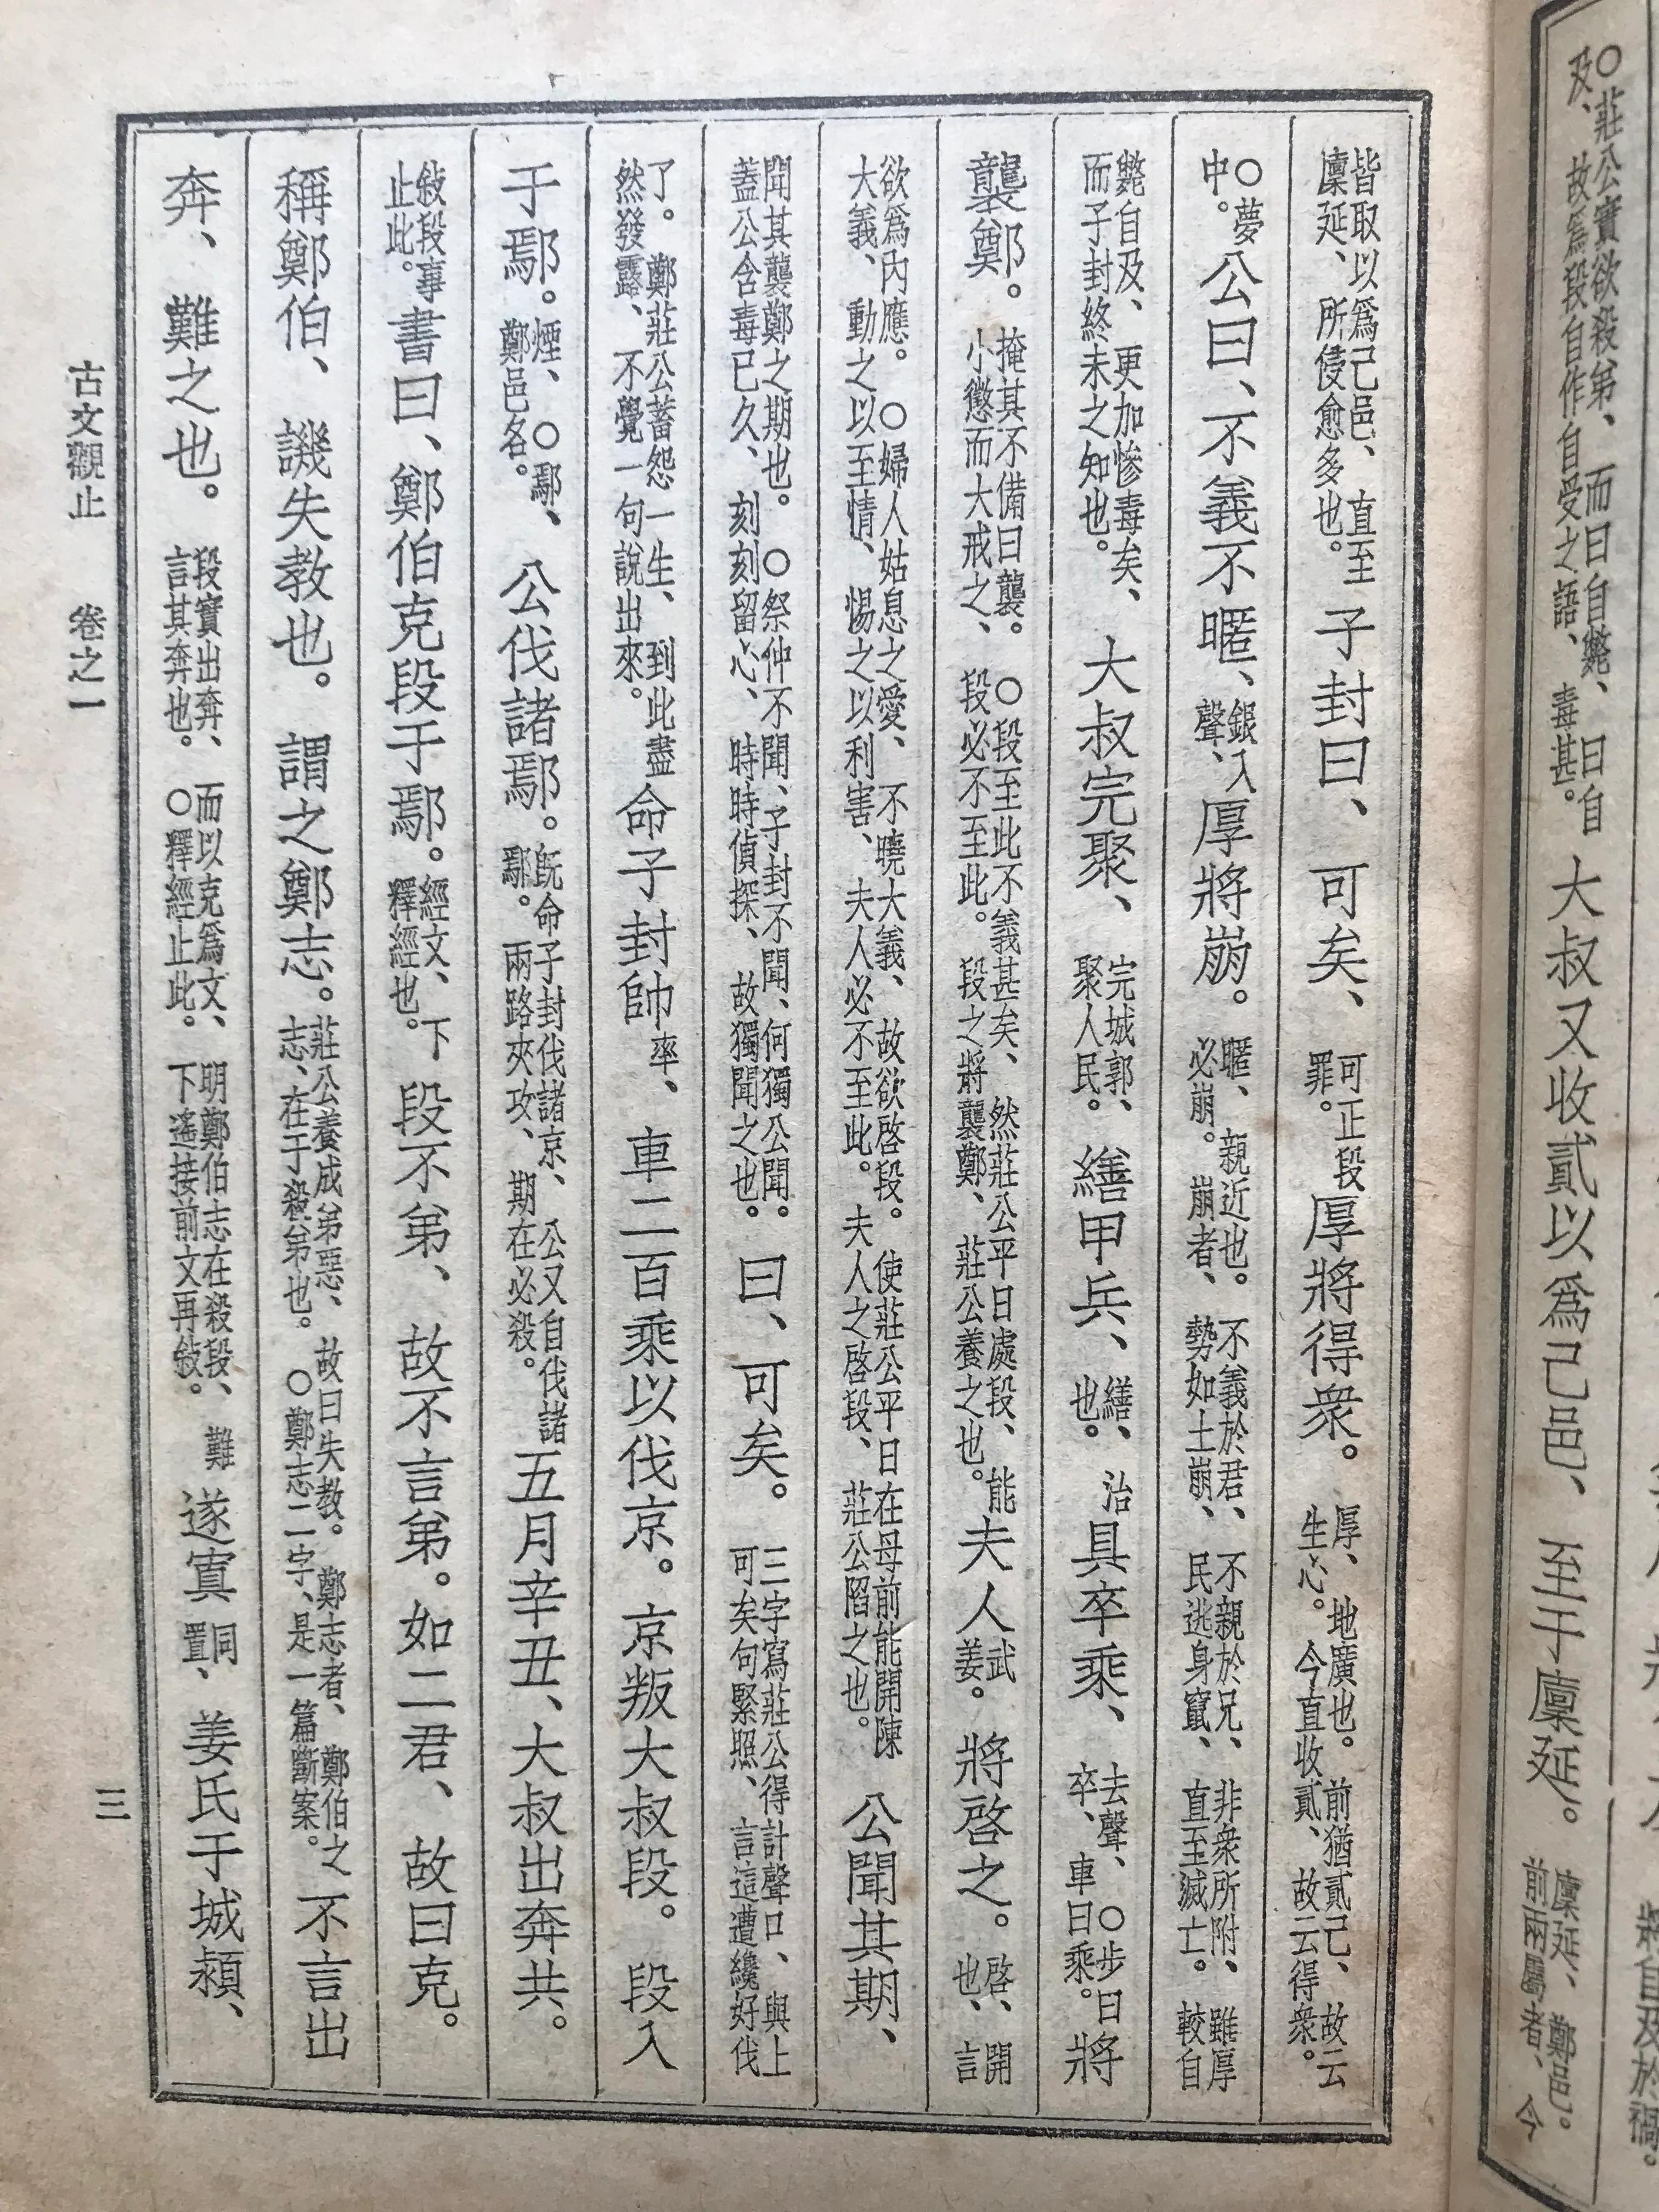 ○莊公實欲殺弟、而曰自斃、曰自及、故爲段自作自受之語、毒甚。大叔又收貳以爲己邑、至于廩延。廩延、鄭邑。前兩屬者、今
皆取以爲己邑、直至廩延、所侵愈多也。子封曰、可矣、可正段罪。厚將得衆。厚、地廣也。前猶貳己、故云生心。今直收貳、故云得衆。
○夢中。公曰、不義不暱、銀入聲、厚將崩。暱、親近也。不義於君、不親於兄、非衆所附、雖厚必崩。崩者、勢如土崩、民逃身竄、直至滅亡。較自
斃自及、更加慘毒矣、而子封終未之知也。大叔完聚、完城郭、聚人民。繕甲兵、繕、治也。具卒乘、去聲、○步曰卒、車曰乘。將
襲鄭。掩其不備曰襲。○段至此不義甚矣、然莊公平日處段、能小懲而大戒之、段必不至此。段之將襲鄭、莊公養之也。夫人武姜。將啓之。啓、開也、言
欲爲內應。○婦人姑息之愛、不曉大義、故欲啓段。使莊公平日在母前能開陳大義、動之以至情、惕之以利害、夫人必不至此。夫人之啓段、莊公陷之也。公聞其期、
聞其襲鄭之期也。○祭仲不聞、子封不聞、何獨公聞。蓋公含毒已久、刻刻留心、時時偵探、故獨聞之也。曰、可矣。三字寫莊公得計聲口、與上可矣句緊照、言這遭纔好伐
了。鄭莊公蓄怨一生、到此盡然發露、不覺一句說出來。命子封帥率、車二百乘以伐京。京叛大叔段。段入
于鄢。煙、○鄢、鄭邑名。公伐諸鄢。既命子封伐諸京、公又自伐諸鄢。兩路夾攻、期在必殺。五月辛丑、大叔出奔共。
敍段事止此。書曰、鄭伯克段于鄢。經文、下釋經也。段不弟、故不言弟。如二君、故曰克。
稱鄭伯、譏失教也。謂之鄭志。莊公養成弟惡、故曰失教。鄭志者、鄭伯之志、在于殺弟也。○鄭志二字、是一篇斷案。不言出
奔、難之也。段實出奔、而以克爲文、明鄭伯志在殺段、難言其奔也。○釋經止此。下遙接前文再敍。遂寘同置、姜氏于城潁、
古文觀止 卷之一
三